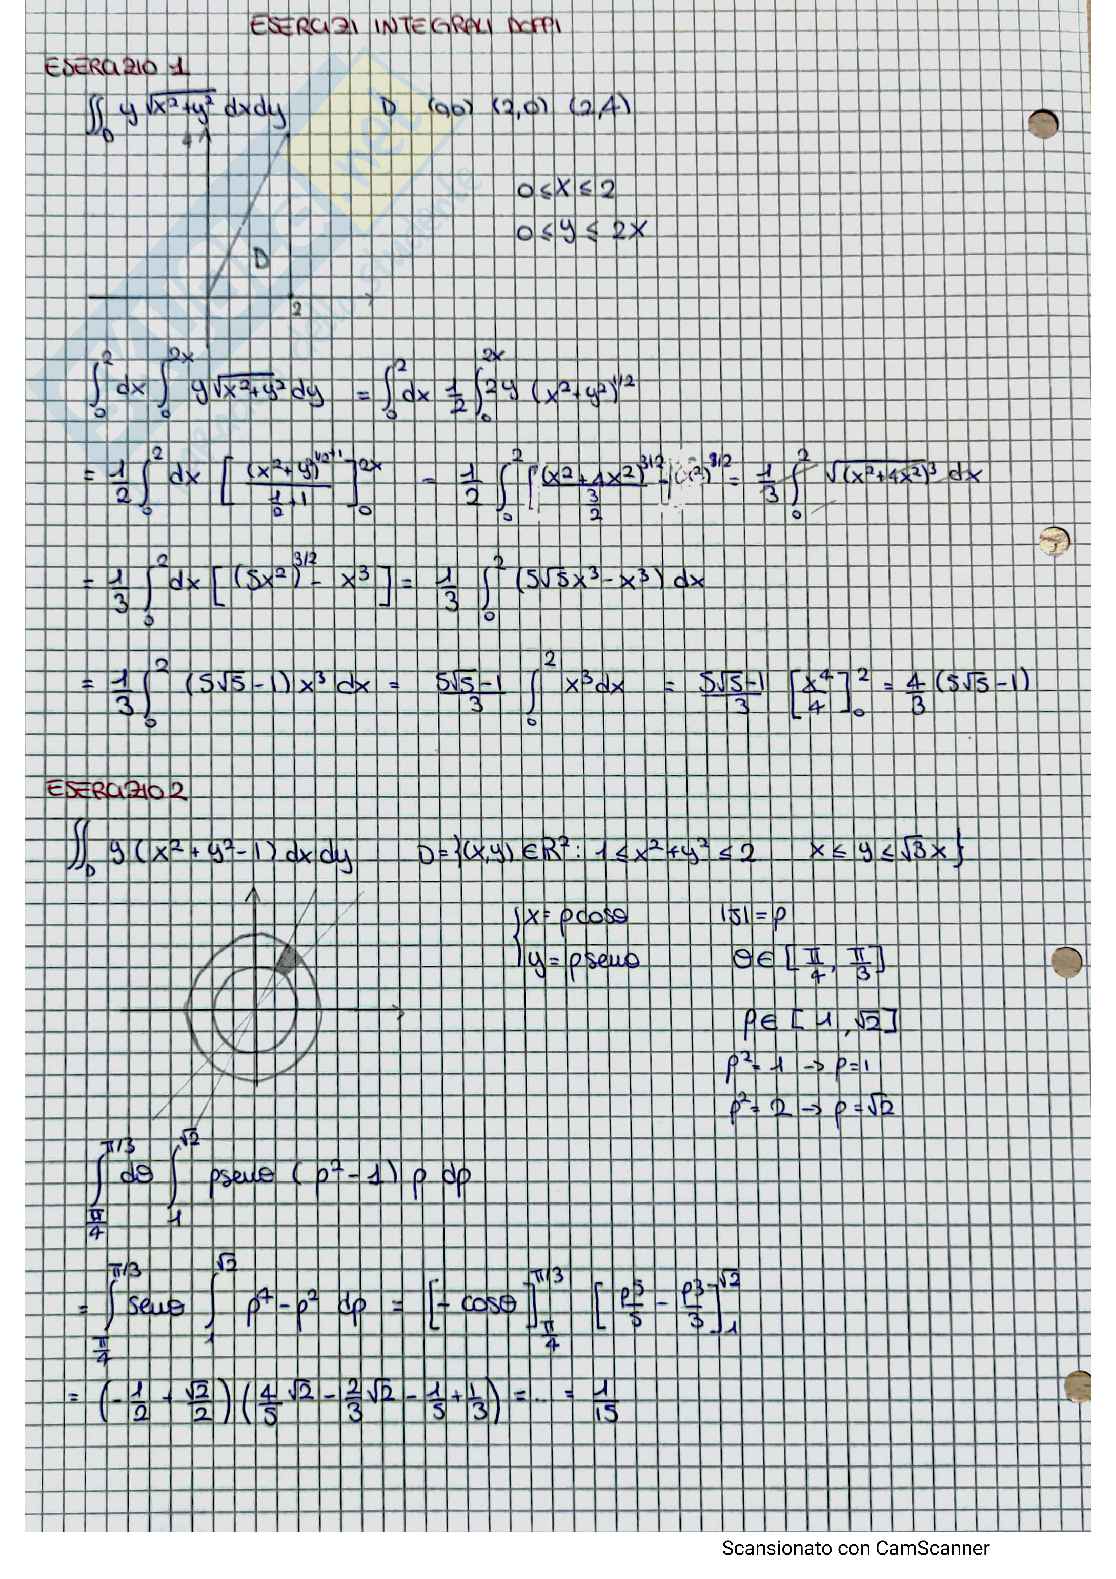 ESERCIZI INTEGRALI DOPPI
ESERCIZIO 1
∬_D y √(x²+y²) dxdy    D (0,0) (2,0) (2,4)
4
0 ≤ x ≤ 2
0 ≤ y ≤ 2x
D
2
∫_0^2 dx ∫_0^{2x} y √(x²+y²) dy = ∫_0^2 dx 1/2 ∫_0^{2x} 2y (x²+y²)^{1/2}
= 1/2 ∫_0^2 dx [ (x²+y)^{1/2+1} / (1/2+1) ]_0^{2x} = 1/2 ∫_0^2 [ (x²+4x²)^{3/2} / (3/2) - (x²)^{3/2} = 1/3 ∫_0^2 √(x²+4x²)³ dx
= 1/3 ∫_0^2 dx [ (5x²)^{3/2} - x³ ] = 1/3 ∫_0^2 (5√5x³ - x³) dx
= 1/3 ∫_0^2 (5√5-1) x³ dx = (5√5-1)/3 ∫_0^2 x³ dx = (5√5-1)/3 [ x⁴/4 ]_0^2 = 4/3 (5√5-1)
ESERCIZIO 2
∬_D y (x²+y²-1) dxdy    D={(x,y) ∈ R²: 1 ≤ x²+y² ≤ 2    x ≤ y ≤ √3x}
{ x= ρcosθ    |J|=ρ
y= ρsenθ    θ∈ [π/4, π/3]
ρ∈ [1, √2]
ρ²= 1 → ρ=1
ρ²= 2 → ρ=√2
∫_{π/4}^{π/3} dθ ∫_1^{√2} ρsenθ (ρ²-1) ρ dρ
= ∫_{π/4}^{π/3} senθ ∫_1^{√2} ρ⁴-ρ² dρ = [-cosθ]_{π/4}^{π/3} [ρ⁵/5 - ρ³/3]_1^{√2}
= (-1/2 + √2/2) (4/5 √2 - 2/3 √2 - 1/5 + 1/3) = ... = 1/15
Scansionato con CamScanner